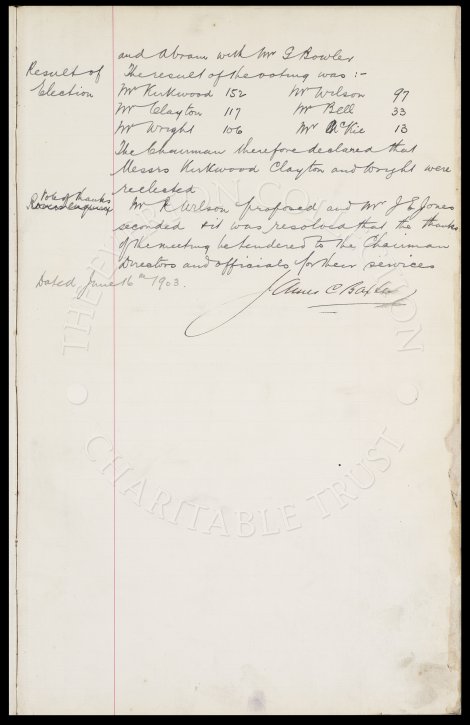 and Abrams with Mr G Bowler
Result of The result of the voting was :-
Election Mr Kirkwood 152 Mr Wilson 97
Mr Clayton 117 Mr Bell 33
Mr Wright 106 Mr McKie 13
The Chairman therefore declared that
Messrs Kirkwood Clayton and Wright were
reelected
Vote of thanks
Mr R Wilson proposed and Mr J E Jones
seconded & it was resolved that the thanks
of the meeting be tendered to the Chairman
Directors and officials for their services
Dated June 16th 1903.
James C Baxter
THE EVERTON COLLECTION
CHARITABLE TRUST